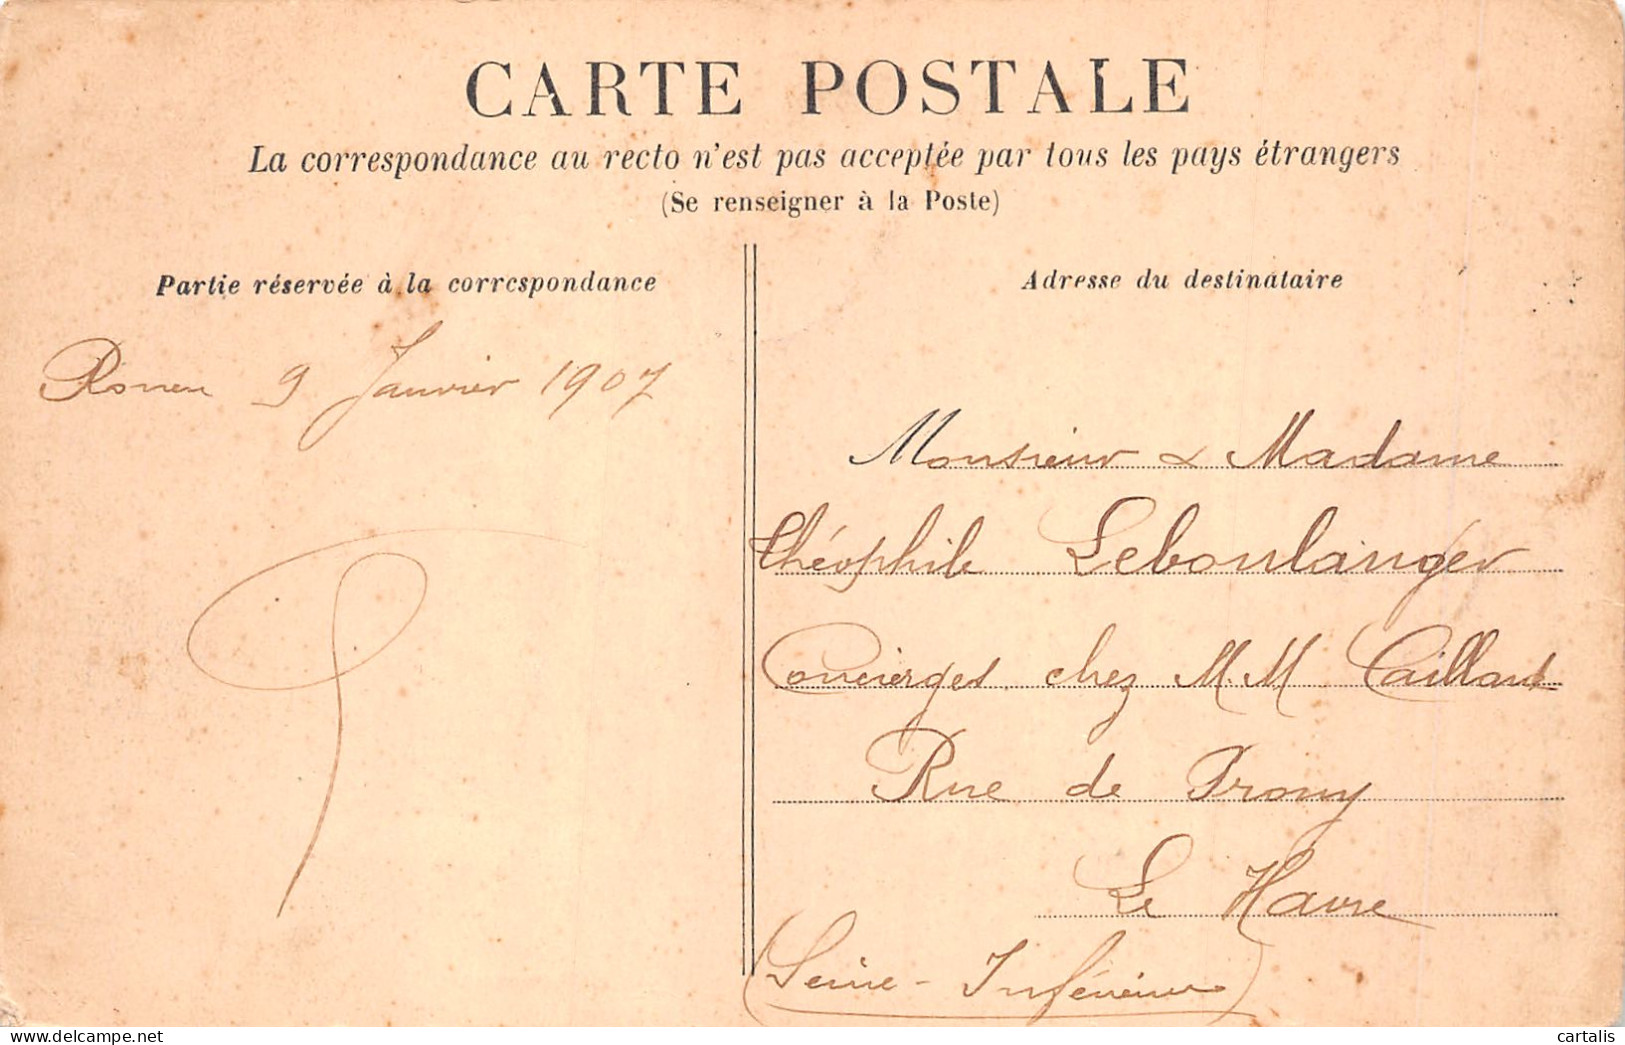 CARTE POSTALE
La correspondance au recto n'est pas acceptée par tous les pays étrangers
(Se renseigner à la Poste)
Partie réservée à la correspondance
Rouen 9 Janvier 1907
Adresse du destinataire
Monsieur & Madame
Théophile Leboulanger
Concierges chez MM Caillard
Rue de Prony
Le Havre
(Seine-Inférieure)
cartalis